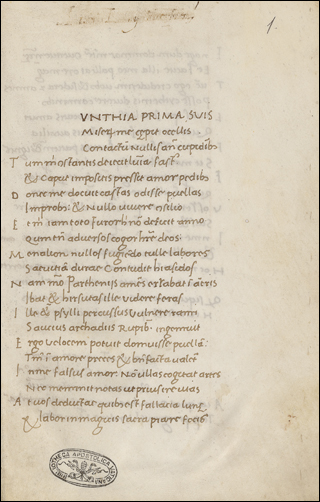 1.
VNTHIA PRIMA SVIS
Miserũ me cępit ocellis
Contactũ Nullis añ cupidib
Tum m̃ ostantis deiecit lũĩa fast
& Caput impositis pressit amor pedib
Donec me docuit castas odisse puellas
Improb; & Nullo vivere cosilio
Et m̃ iam toto furor h nõ deficit anno
Qum tñ adversos cogor hr̃e deos
Menalion nullos fugiẽdo tulle labores
Sęvitiã durae Contudit hiasidos
Nam mõ Parthenijs amẽs errabat ĩ ãtris
Ibat & hirsutas ille videre feras
Ille & psylli percussus vulnere rami
Saucius archadiis Rupib ingemuit
Ergo velocem potuit domuisse puellã
Tm̃ ĩ amore preces & bñfacta valẽt
In me falsus amor Nõ ullas cogitat artes
Nec meminit notas ut prius ire vias
At vos deductae quib est fallacia lunę
& labor in magicis sacra piare focis
BIBLIOTHECA APOSTOLICA VATICANA